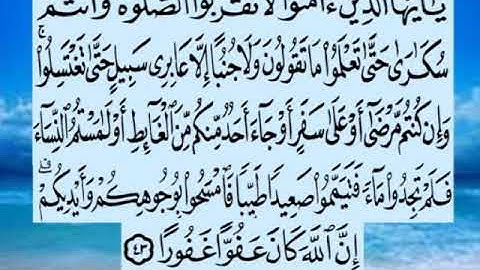 يَـٰٓأَيُّهَا ٱلَّذِينَ ءَامَنُوا۟ لَا تَقْرَبُوا۟ ٱلصَّلَوٰةَ وَأَنتُمْ
سُكَـٰرَىٰ حَتَّىٰ تَعْلَمُوا۟ مَا تَقُولُونَ وَلَا جُنُبًا إِلَّا عَابِرِى سَبِيلٍ حَتَّىٰ تَغْتَسِلُوا۟ ۚ
وَإِن كُنتُم مَّرْضَىٰٓ أَوْ عَلَىٰ سَفَرٍ أَوْ جَآءَ أَحَدٌ مِّنكُم مِّنَ ٱلْغَآئِطِ أَوْ لَـٰمَسْتُمُ ٱلنِّسَآءَ
فَلَمْ تَجِدُوا۟ مَآءً فَتَيَمَّمُوا۟ صَعِيدًا طَيِّبًا فَٱمْسَحُوا۟ بِوُجُوهِكُمْ وَأَيْدِيكُمْ ۗ
إِنَّ ٱللَّهَ كَانَ عَفُوًّا غَفُورًا ٤٣